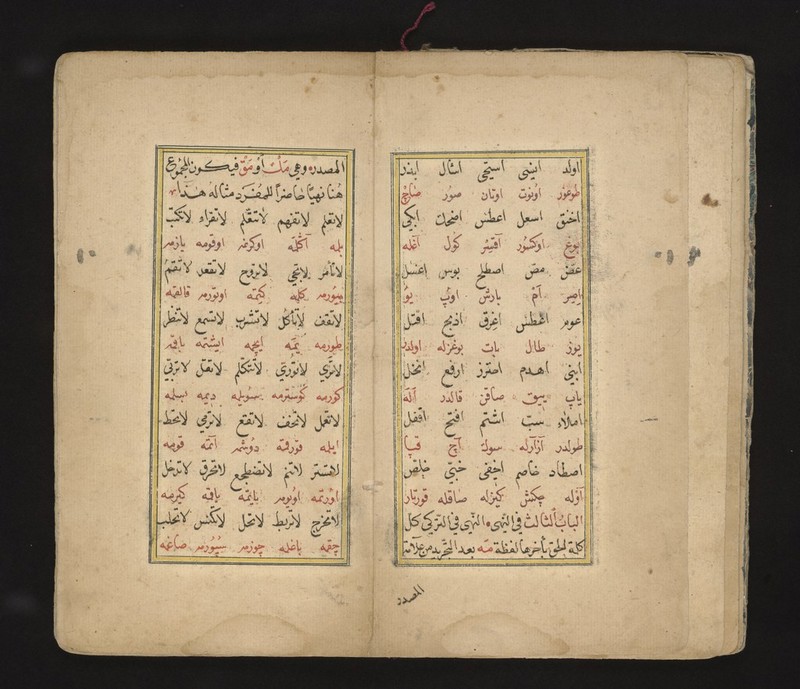 اولد ابني استحي اسأل ابذر
طوغور اونوت اوتان صور صاچ
اخنق اسعل اعطس اضحك ابكي
بوغ اوكسور آقسر كول آغله
عض مص اصطلح بوس اغتسل
اصر آم بارش اوپ يو
عوم اغطس اغرق اذبح اقتل
يوز طال بات بوغزله اولدر
ابني اهدم احترز ارفع انخل
ياپ ييق صاقن قالدر آله
املاء سب اشتم افتح اقفل
طولدر آزارله سوك آچ قپا
اصطاد خاصم اخفي خبي خلص
آوله چكش كيزله صاقله قورتار
الباب الثالث في النهي النهي في التركي كل
كلمة لحق بأخرها لفظة مه بعد التجريد من علامة
المصدر
المصدر وهي مك أو مق فيكون المجموع
هنا نهيا حاضرا للمفرد مثاله هذا
لاتعلم لاتفهم لاتتعلم لاتقراء لاتكتب
بلمه آكلمه اوكرنمه اوقومه يازمه
لاتأمر لاتجي لاتروح لاتقعد لاتقم
بيورمه كلمه كيتمه اوتورمه قالقمه
لاتقف لاتأكل لاتشرب لاتسمع لاتنظر
طورمه يمه ايچمه ايشتمه باقمه
لاتري لاتوري لاتتكلم لاتقل لاتربي
كورمه كوسترمه سويلمه ديمه بسلمه
لاتعمل لاتخف لاتقع لاترمي لاتحط
ايلمه قورقمه دوشمه آتمه قومه
لاتستر لاتنم لاتضطجع لاتحرق لاتدخل
اورتمه اويومه ياتمه ياقمه كيرمه
لاتخرج لاتربط لاتحل لاتكنس لاتحلب
چقمه باغلمه چوزمه سپورمه صاغمه